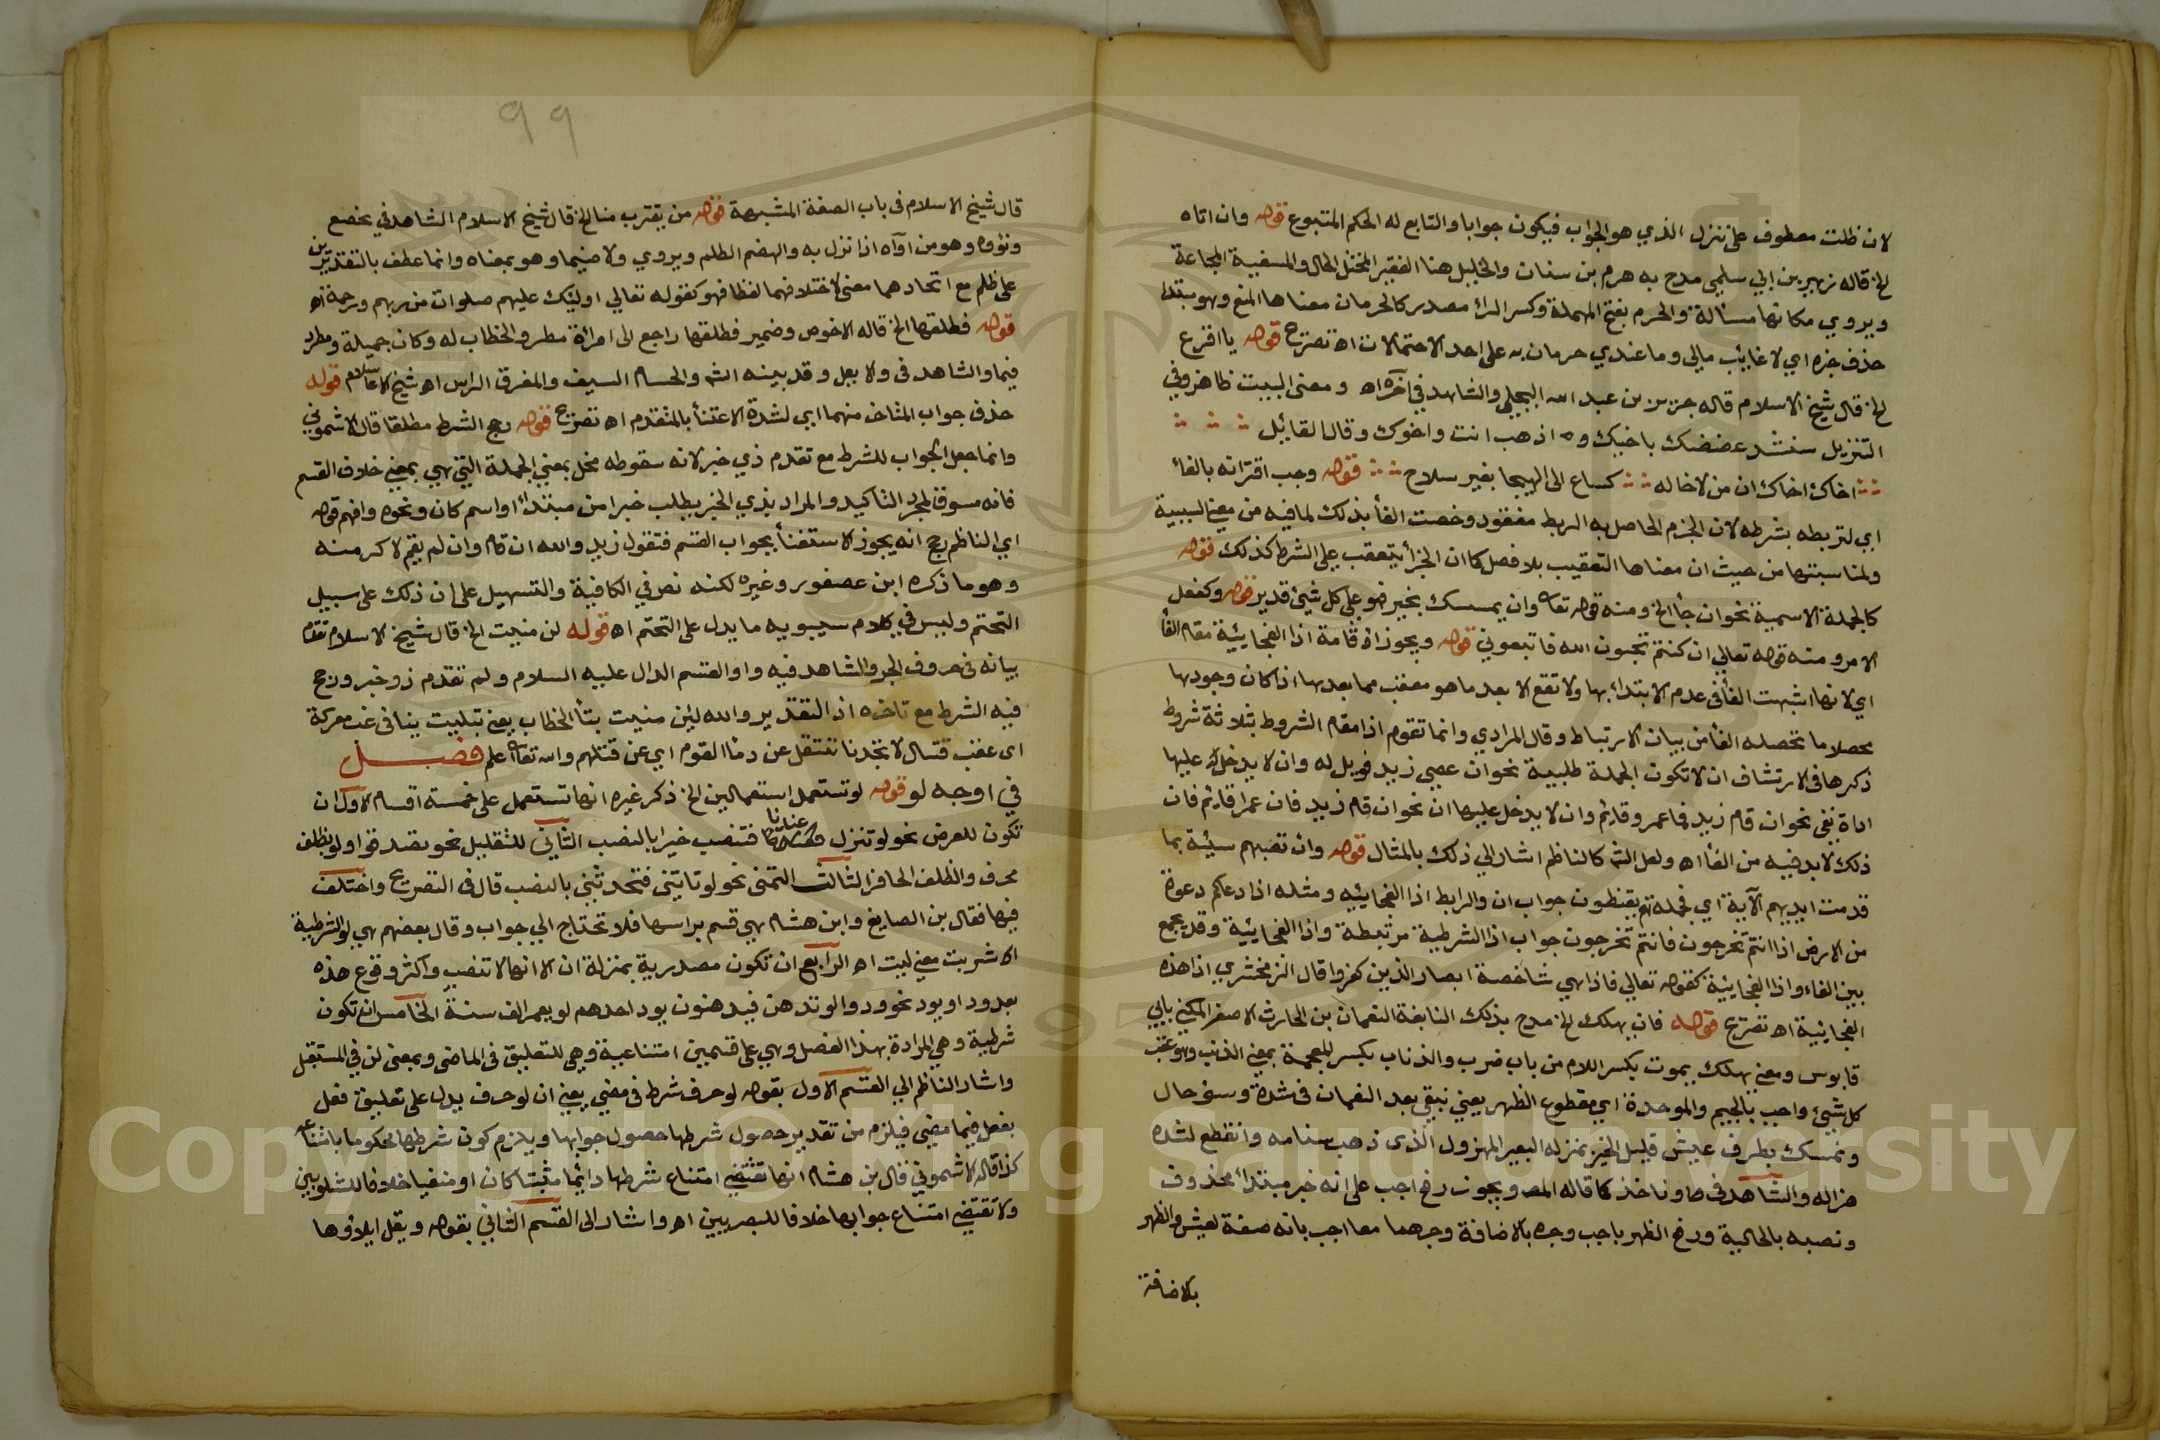 لان ظلت معطوف على تنزل الذي هو الجواب فيكون جوابا والتابع له الحكم المتبوع قوله وان اتاه
الخ قاله زهير بن ابي سلمى مدح به هرم بن سنان والخليل هنا الفقير المختل الحال والمسغبة المجاعة
ويروي مكانها مسألة والحرم بفتح المهملة وكسر الراء مصدر كالحرمان معناها المنع وهو مبتدا
حذف خبره اي لا غايب مالي وما عندي حرمان به على احد الاحتمالات اه تصريح قوله يا اقرع
الخ قال شيخ الاسلام قاله جرير بن عبد الله البجلي والشاهد في آخره اه ومعنى البيت ظاهر وفي
التنزيل سنشد عضضك باخيك و اذهب انت واخوك وقال القايل
اخاك اخاك ان من لا خا له كساع الى الهيجا بغير سلاح قوله وجب اقترانه بالفاء
اي لتربطه بشرطه لان الجزم الحاصل به الربط مفقود وخصت الفأ بذلك لما فيه من معنى السببية
ولمناسبتها من حيث ان معناها التعقيب بلا فصل كما ان الجزأ يتعقب على الشرط كذلك قوله
كالجملة الاسمية نحو ان جأ الخ ومنه قوله تعا وان يمسسك بخير فهو على كل شيئ قدير قوله وكفعل
الامر ومنه قوله تعالي ان كنتم تحبون الله فاتبعوني قوله ويجوز اقامة اذا الفجايئية مقام الفأ
اي لانها اشبهت الفأ في عدم الابتدائ بها ولا تقع الا بعد ما هو معقب مما بعدها اذا كان وجودها
محصلا ما تحصله الفأ من بيان الارتباط وقال المرادي وانما تقوم اذا مقام الشروط بثلاثة شروط
ذكرها في الارتشاف ان لا تكون الجملة طلبية نحو ان عصى زيد فويل له وان لا يدخل عليها
اداة نفي نحو ان قام زيد فما عمرو قايم وان لا يدخل عليها ان نحو ان قام زيد فان عمرا قايم فان
ذلك لا بد فيه من الفأ اه ولعل الش كالناظم اشار الي ذلك بالمثال قوله وان تصبهم سيئة بما
قدمت ايديهم الآية اي فجملة هم يقنطون جواب ان والرابط اذا الفجايئيه ومثله اذا دعاكم دعوة
من الارض اذا انتم تخرجون فانتم تخرجون جواب اذا الشرطية مرتبطة واذا الفجايئية وقد يجمع
بين الفاء واذا الفجايئية كقوله تعالي فاذا هي شاخصة ابصار الذين كفروا قال الزمخشري اذا هذه
الفجايئية اه تصريح قوله فان يهلك الخ مدح بذلك النابغة النعمان بن الحارث الاصغر المكني بابي
قابوس ومعنى يهلك يموت بكسر اللام من باب ضرب والذناب بكسر المعجمة بمعنى الذنب وهو عقب
كل شيئ واجب بالجيم والموحدة اي مقطوع الظهر يعني نبقي بعد النعمان في شدة وسؤ حال
ونمسك بطرف عيش قليل الخير بمنزلة البعير المهزول الذي ذهب سنامه وانقطع لشده
هزاله والشاهد في وناخذ كما قاله المص ويجوز رفع اجب على انه خبر مبتدأ محذوف
ونصبه بالحالية ورفع الظهر باجب وجره بالاضافة وجرهما معا اجب بانه صفة لعيش والظهر
بالاضافة
٩٩
قال شيخ الاسلام في باب الصفة المشبهة قوله من يقترب منا الخ قال شيخ الاسلام الشاهد في يخضع
ونؤوه وهو من اوآه اذا نزل به والهضم الظلم ويروي ولا ضيما وهو بمعناه وانما عطف بالتقديرين
على ظلم مع اتحادهما معنى لاختلافهما لفظا فهو كقوله تعالي اوليك عليهم صلوات من ربهم ورحمة اه
قوله فطلقها الخ قاله الاخوص وضمير فطلقها راجع الى امرأة مطر والخطاب له وكان جميلة ومطر د
فيما والشاهد في ولا يعل وقد بينه الش والحسام السيف والمفرق الراس اه شيخ الاسلام قوله
حذف جواب المتاخر منهما اي لشدة الاعتنأ بالمتقدم اه تصريح قوله رجح الشرط مطلقا قال الاشموني
وانما جعل الجواب للشرط مع تقدم ذي خبر لانه سقوطه مخل بمعني الجملة التي هي بمعنى خلاف القسم
فانه مسوق لمجرد التاكيد والمراد بذي الخبر يطلب خبرا من مبتدائ او اسم كان ونحوه وافهم قوله
اي الناظم رجح انه يجوز الاستغنأ بجواب القسم فتقول زيد والله ان قام وان لم يقم لاكرمنه
وهو ما ذكره ابن عصفور وغيره لكنه نص في الكافية والتسهيل على ان ذلك على سبيل
التحتم وليس في كلام سيبويه ما يدل على التحتم اه قوله لن منيت الخ قال شيخ الاسلام تقدم
بيانه في حروف الجر والشاهد فيه واو القسم الدال عليه السلام ولم تقدم ذو خبر ورجح
فيه الشرط مع تاخره اذ التقدير والله لئن منيت بتأ الخطاب يعني تبليت بنا في غب معركة
اي عقب قتال لا تجدنا ننتقل عن دمأ القوم اي عن قتلهم والله تعا اعلم فصل
في اوجه لو قوله لو تستعمل استعمالين الخ ذكر غيره انها تستعمل على خمسة اقسام الاول ان
تكون للعرض نحو لو تنزل عندنا فتصب خيرا بالنصب الثاني للتقليل نحو تصدقوا ولو بظلف
محرف والظلف الحافر الثالث التمنى نحو لو تاتيني فتحدثني بالنصب قال في التصريح واختلف
فيها فقال بن الصايغ وابن هشام هي قسم براسها فلا تحتاج الي جواب وقال بعضهم هي لو الشرطية
اشربت معنى ليت اه الرابع ان تكون مصدرية بمنزلة ان الا انها لا تنصب واكثر وقوع هذه
بعد ود او يود نحو ودوا لو تدهن فيدهنون يود احدهم لو يعمر الف سنة الخامس ان تكون
شرطية وهي المرادة بهذا الفصل وهي على قسمين امتناعية وهي للتعليق في الماضى وبمعنى لن في المستقبل
واشار الناظم الي القسم الاول بقوله لو حرف شرط في مضي يعني ان لو حرف يدل على تعليق فعل
بفعل فيما مضى فيلزم من تقدير حصول شرطها حصول جوابها ويلزم كون شرطها محكوما بامتناعه
كذا قاله الاشموني قال بن هشام انها تقتضي امتناع شرطها دايما مثبتا كان او منفيا خلافا للشلوبين
ولا تقتضي امتناع جوابها خلافا للبصريين اه واشار الى القسم الثاني بقوله ويقل ايلاؤها
Copyright © King Saud University